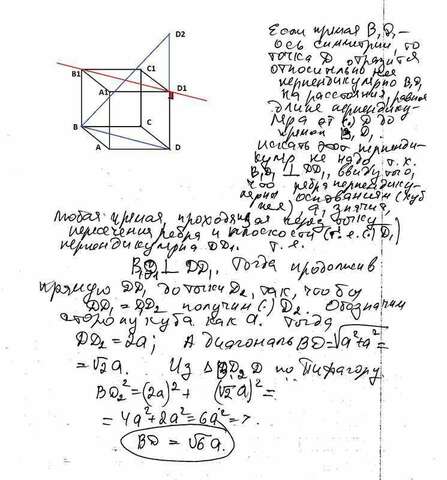 D2
B1
C1
A1
D1
B
C
A
D
Если прямая B₁D₁ –
ось симметрии, то
точка D отразится
относительно нее
перпендикулярно B₁D₁
на расстояния, равная
длине перпендику-
ляра от (·) D до
прямой B₁D₁
искать этот перпенди-
куляр не надо т.к.
B₁D₁ ⊥ DD₁, ввиду того,
что ребра перпендику-
лярны основаниям (куб
же) а, значит,
любая прямая, проходящая через точку
пересечения ребра и плоскости (т.е. (·) D₁)
перпендикулярна DD₁. т.е.
B₁D₁ ⊥ DD₁. Тогда продолжив
прямую DD₁ до точки D₂ так, что бы
DD₁ = DD₂ получим (·) D₂. Обозначим
сторону куба как a. Тогда
DD₂ = 2a; А диагональ BD = √a²+a² =
= √2a. Из Δ BD₂D по Пифагору
BD₂² = (2a)² + (√2a)² =
= 4a² + 2a² = 6a² =>
BD = √6a.